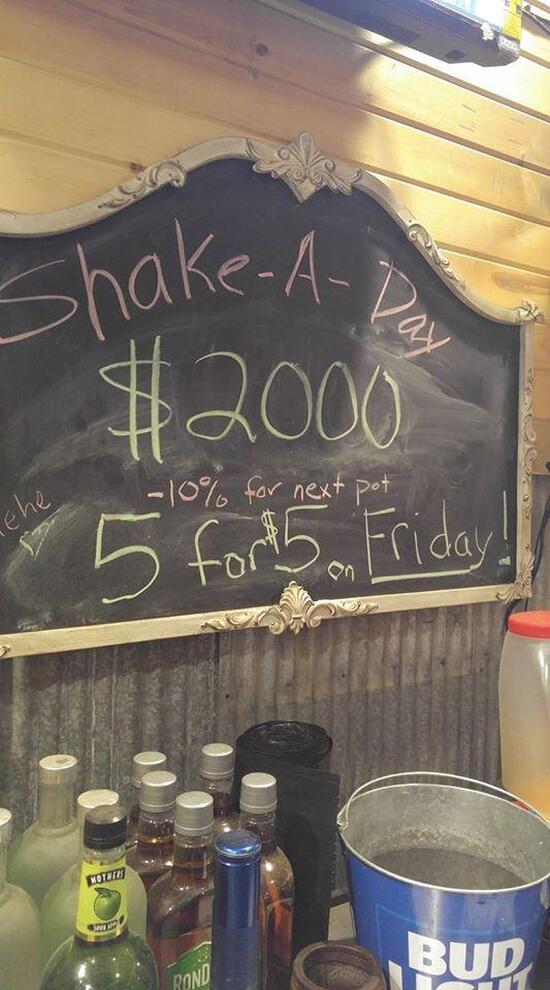 Shake-A-Day
$2000
-10% for next pot
hehe
5 for $5 on Friday!
MOTHERS
SOUR APPLE
BOND
BUD
LIGHT